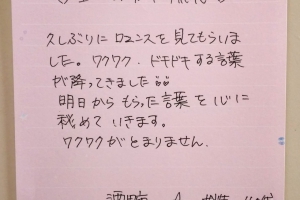 久しぶりに ロマンスを見てもらいま
した。ワクワク．ドキドキする言葉
が降ってきました
明日から もらった言葉を心に
秘めていきます。
ワクワクがとまりません.